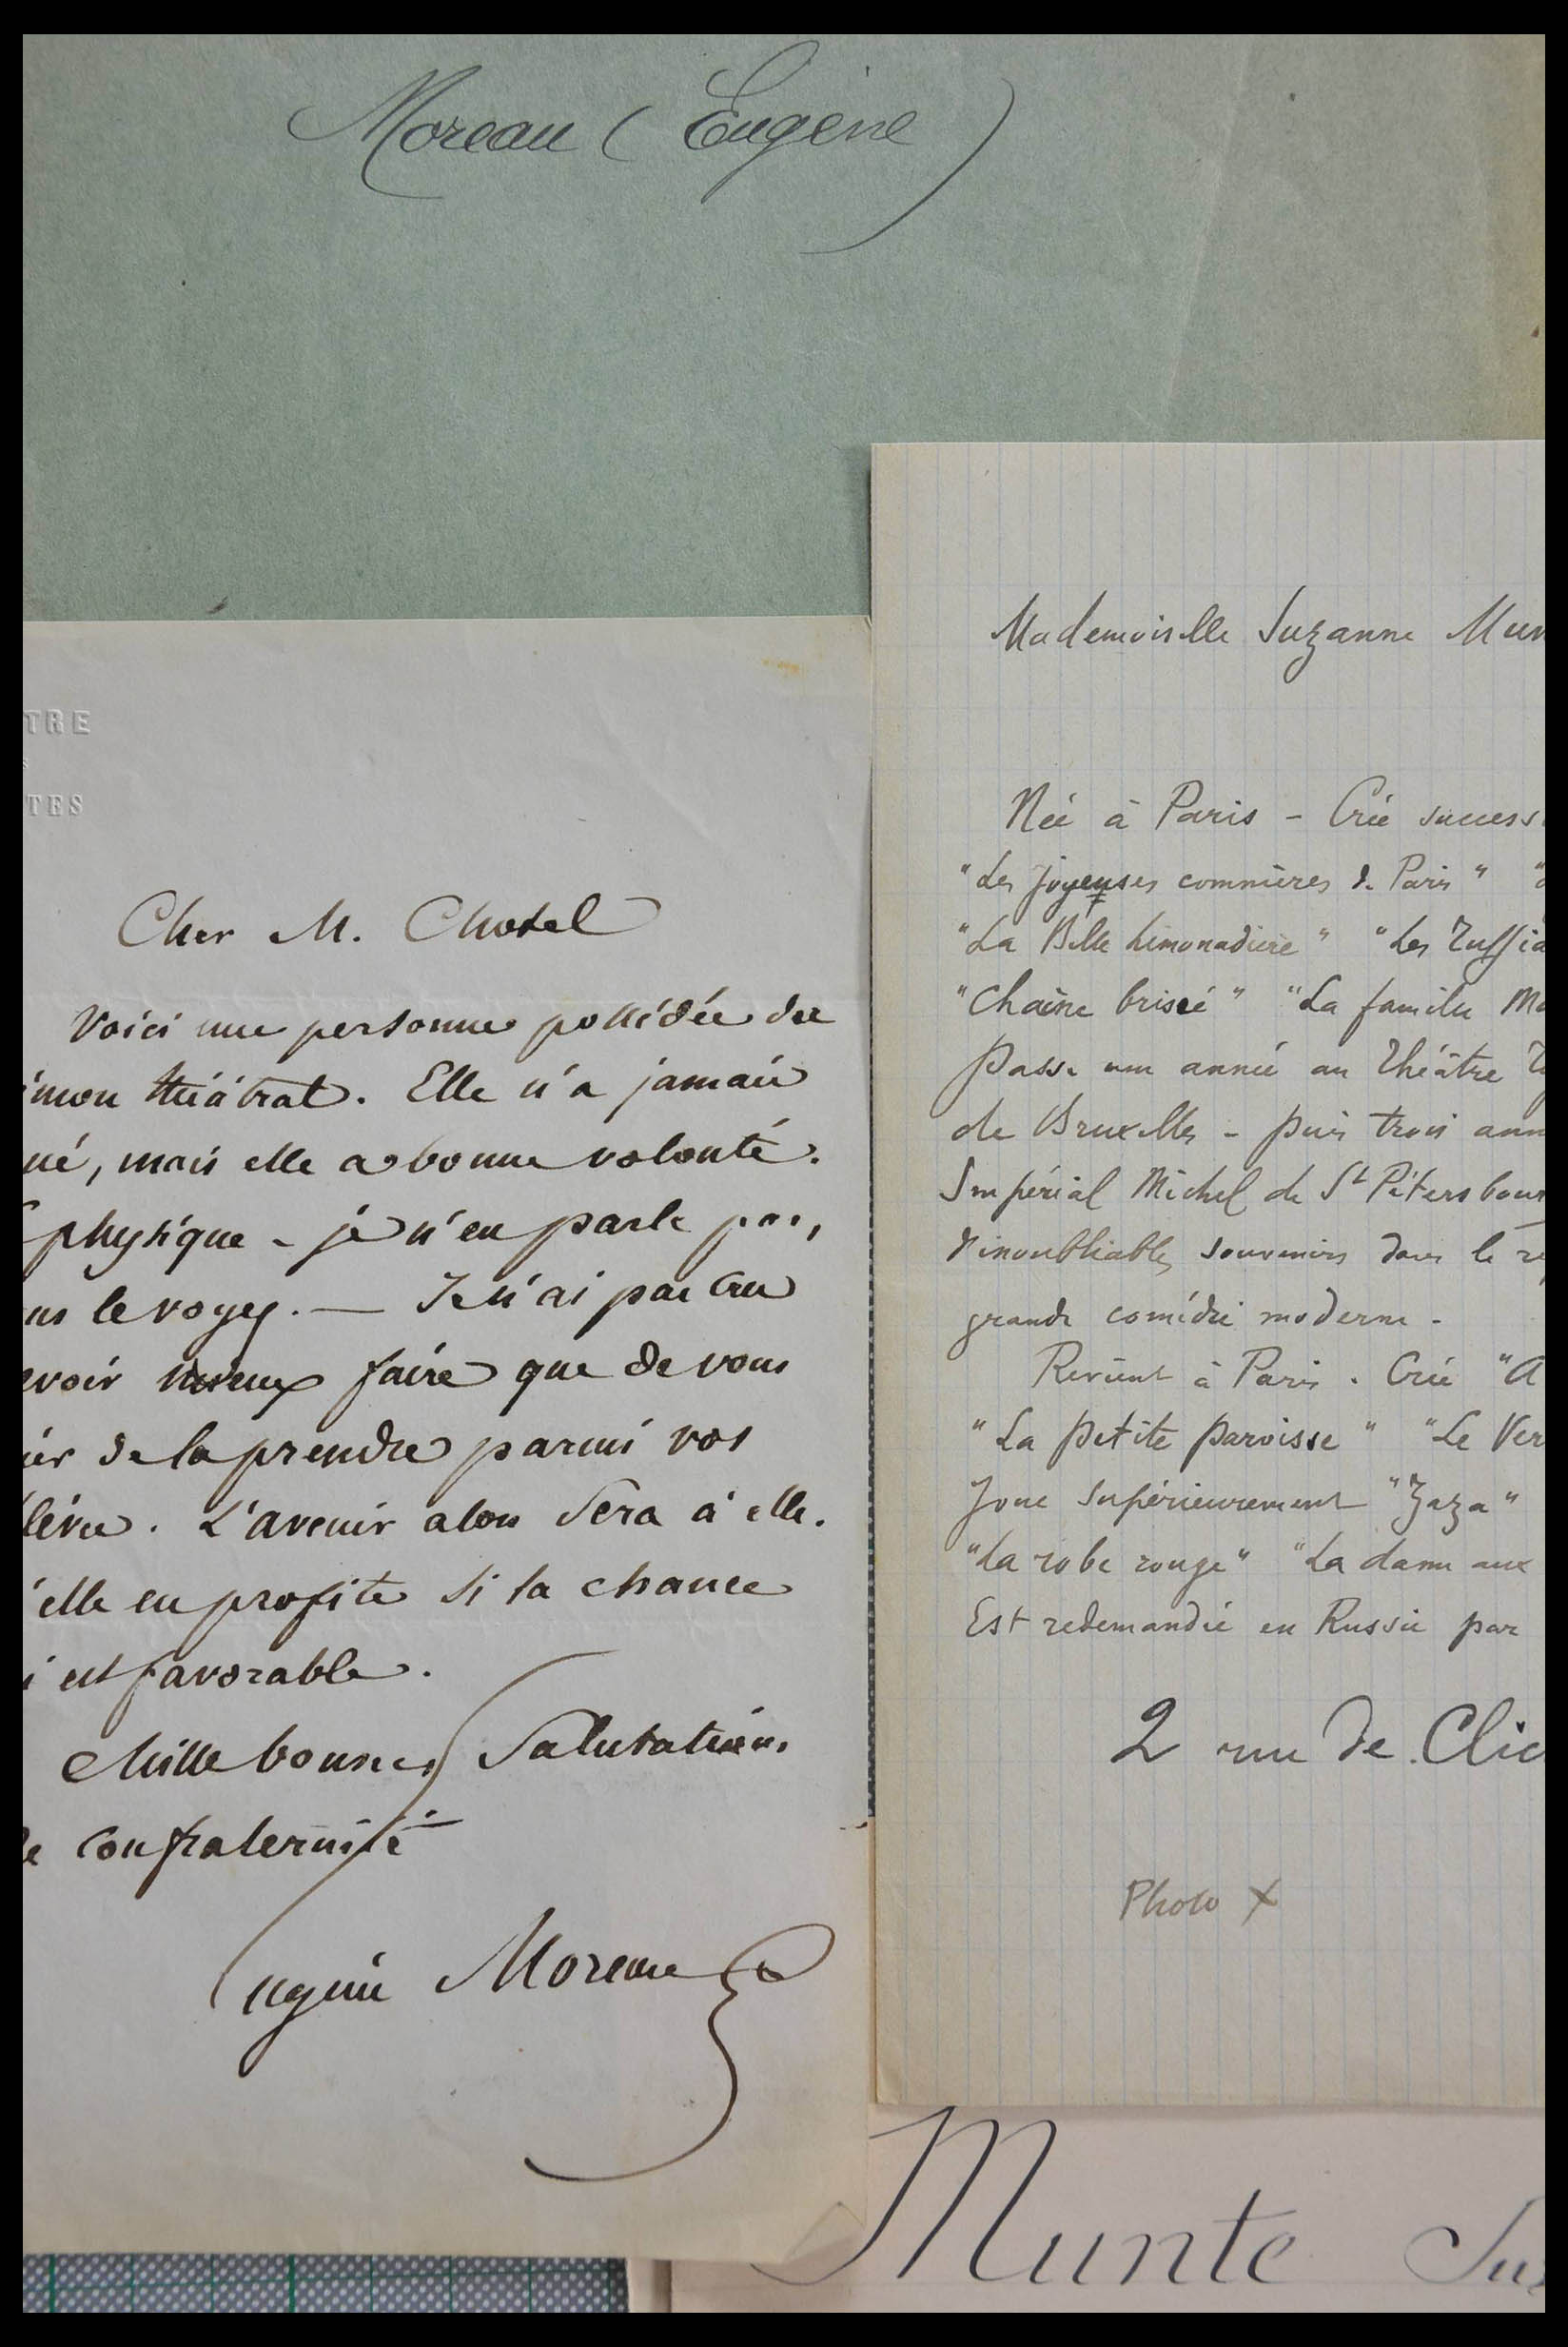 Moreau (Eugène)
TRE
TES
Cher M. Chotel
Voici une personne possédée du
émon théâtral. Elle n'a jamais
ué, mais elle a bonne volonté.
physique - je n'en parle pas,
us le voyez. — Je n'ai pas cru
evoir mieux faire que de vous
ier de la prendre parmi vos
lèves. L'avenir alors sera à elle.
'elle en profite si la chance
i est favorable.
Mille bonnes salutations
de confraternité
Eugène Moreau
Mademoiselle Suzanne Mun
Née à Paris - Crée success
"Les joyeuses commères de Paris"
"La Belle limonadière" "Les Ruffia
"Chaîne brisée" "La famille Ma
Passe une année au théâtre
de Bruxelles - puis trois ann
Impérial Michel de St Pétersbour
d'inoubliables souvenirs dans le ré
grande comédie moderne -
Revient à Paris. Crée "A
"La petite paroisse" "Le Ver
Joue supérieurement "Zaza"
"La robe rouge" "La dame aux
Est redemandée en Russie par
2 rue de Clic
Photo X
Munte Suz